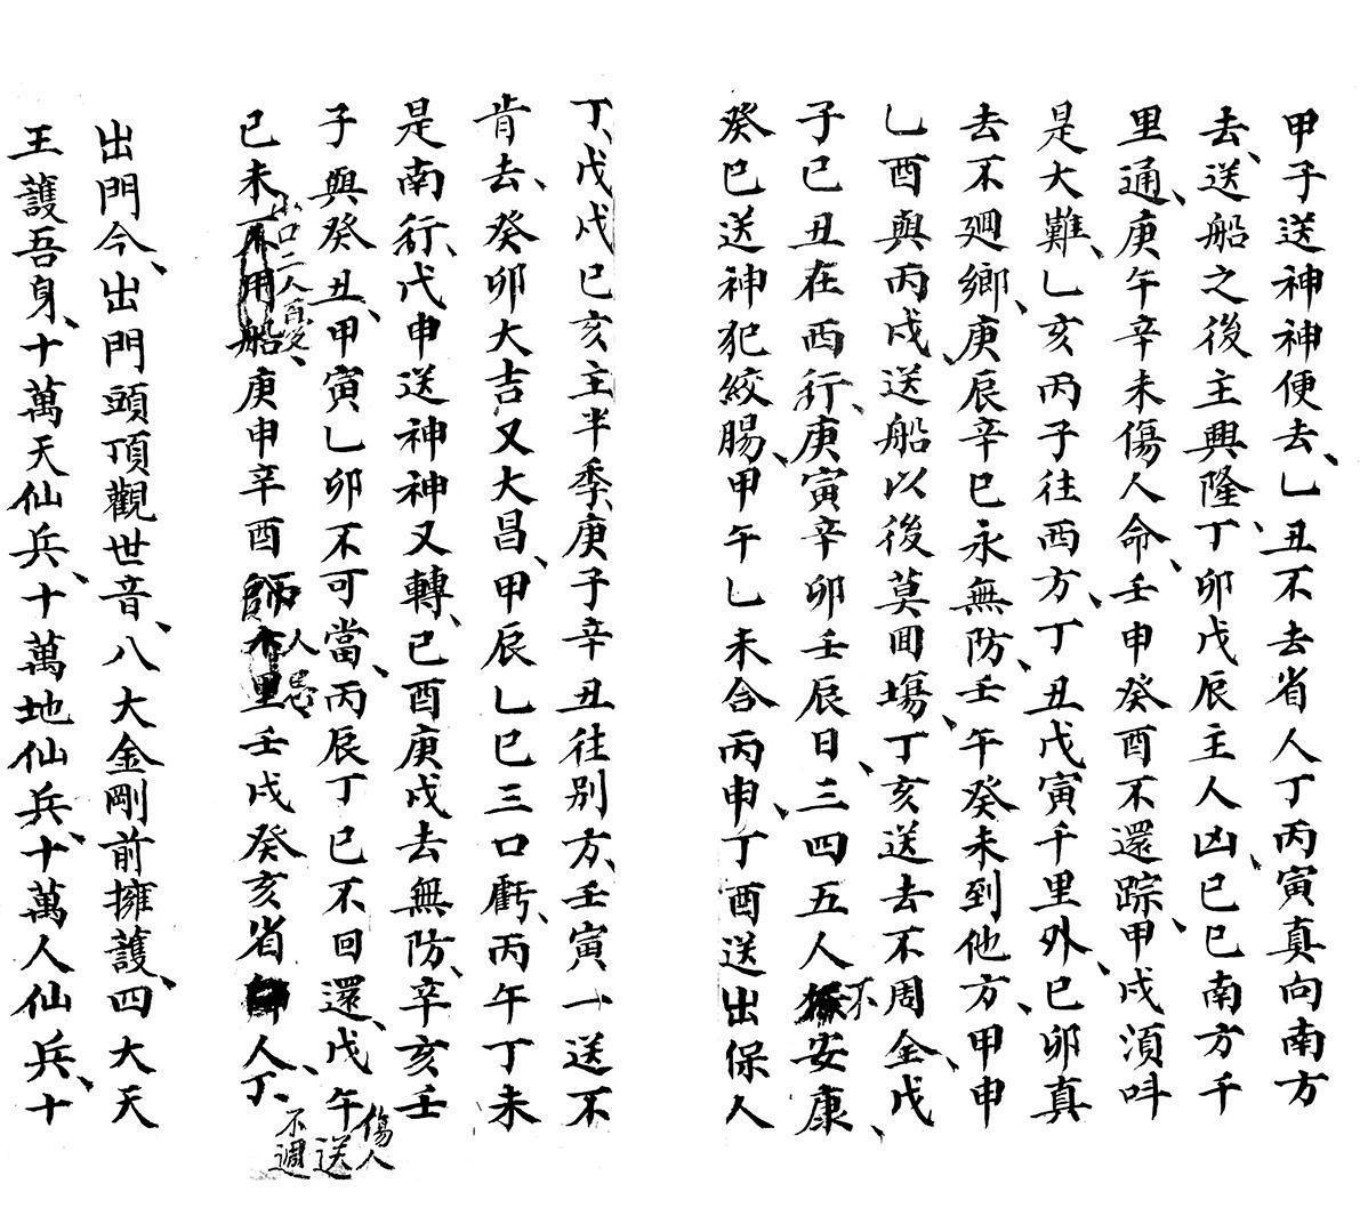 甲子送神神便去、乚丑不去省人丁丙寅真向南方
去、送船之後主興隆、丁卯戊辰主人凶、已巳南方千
里通、庚午辛未傷人命、壬申癸酉不還踪、甲戌湏呌
是大難、乚亥丙子往西方、丁丑戊寅千里外、已卯真
去不廻鄉、庚辰辛巳永無防、壬午癸未到他方、甲申
乚酉與丙戌、送船以後莫囬塲、丁亥送去不周全、戊
子已丑在西行、庚寅辛卯壬辰日、三四五人不安康、
癸巳送神犯絞腸、甲午乚未合丙申、丁酉送出保人
丁、戊戌已亥主半季庚子辛丑往别方、壬寅一送不
肯去、癸卯大吉又大昌、甲辰乚巳三口虧、丙午丁未
是南行、戊申送神神又轉、已酉庚戌去無防、辛亥壬
子與癸丑、甲寅乚卯不可當、丙辰丁巳不回還、戊午
傷人
送
已未船庚申辛酉里壬戌癸亥省人丁、
小口二人百
人
不週
出門今、出門頭頂觀世音、八大金剛前擁護、四大天
王護吾身、十萬天仙兵、十萬地仙兵、十萬人仙兵、十